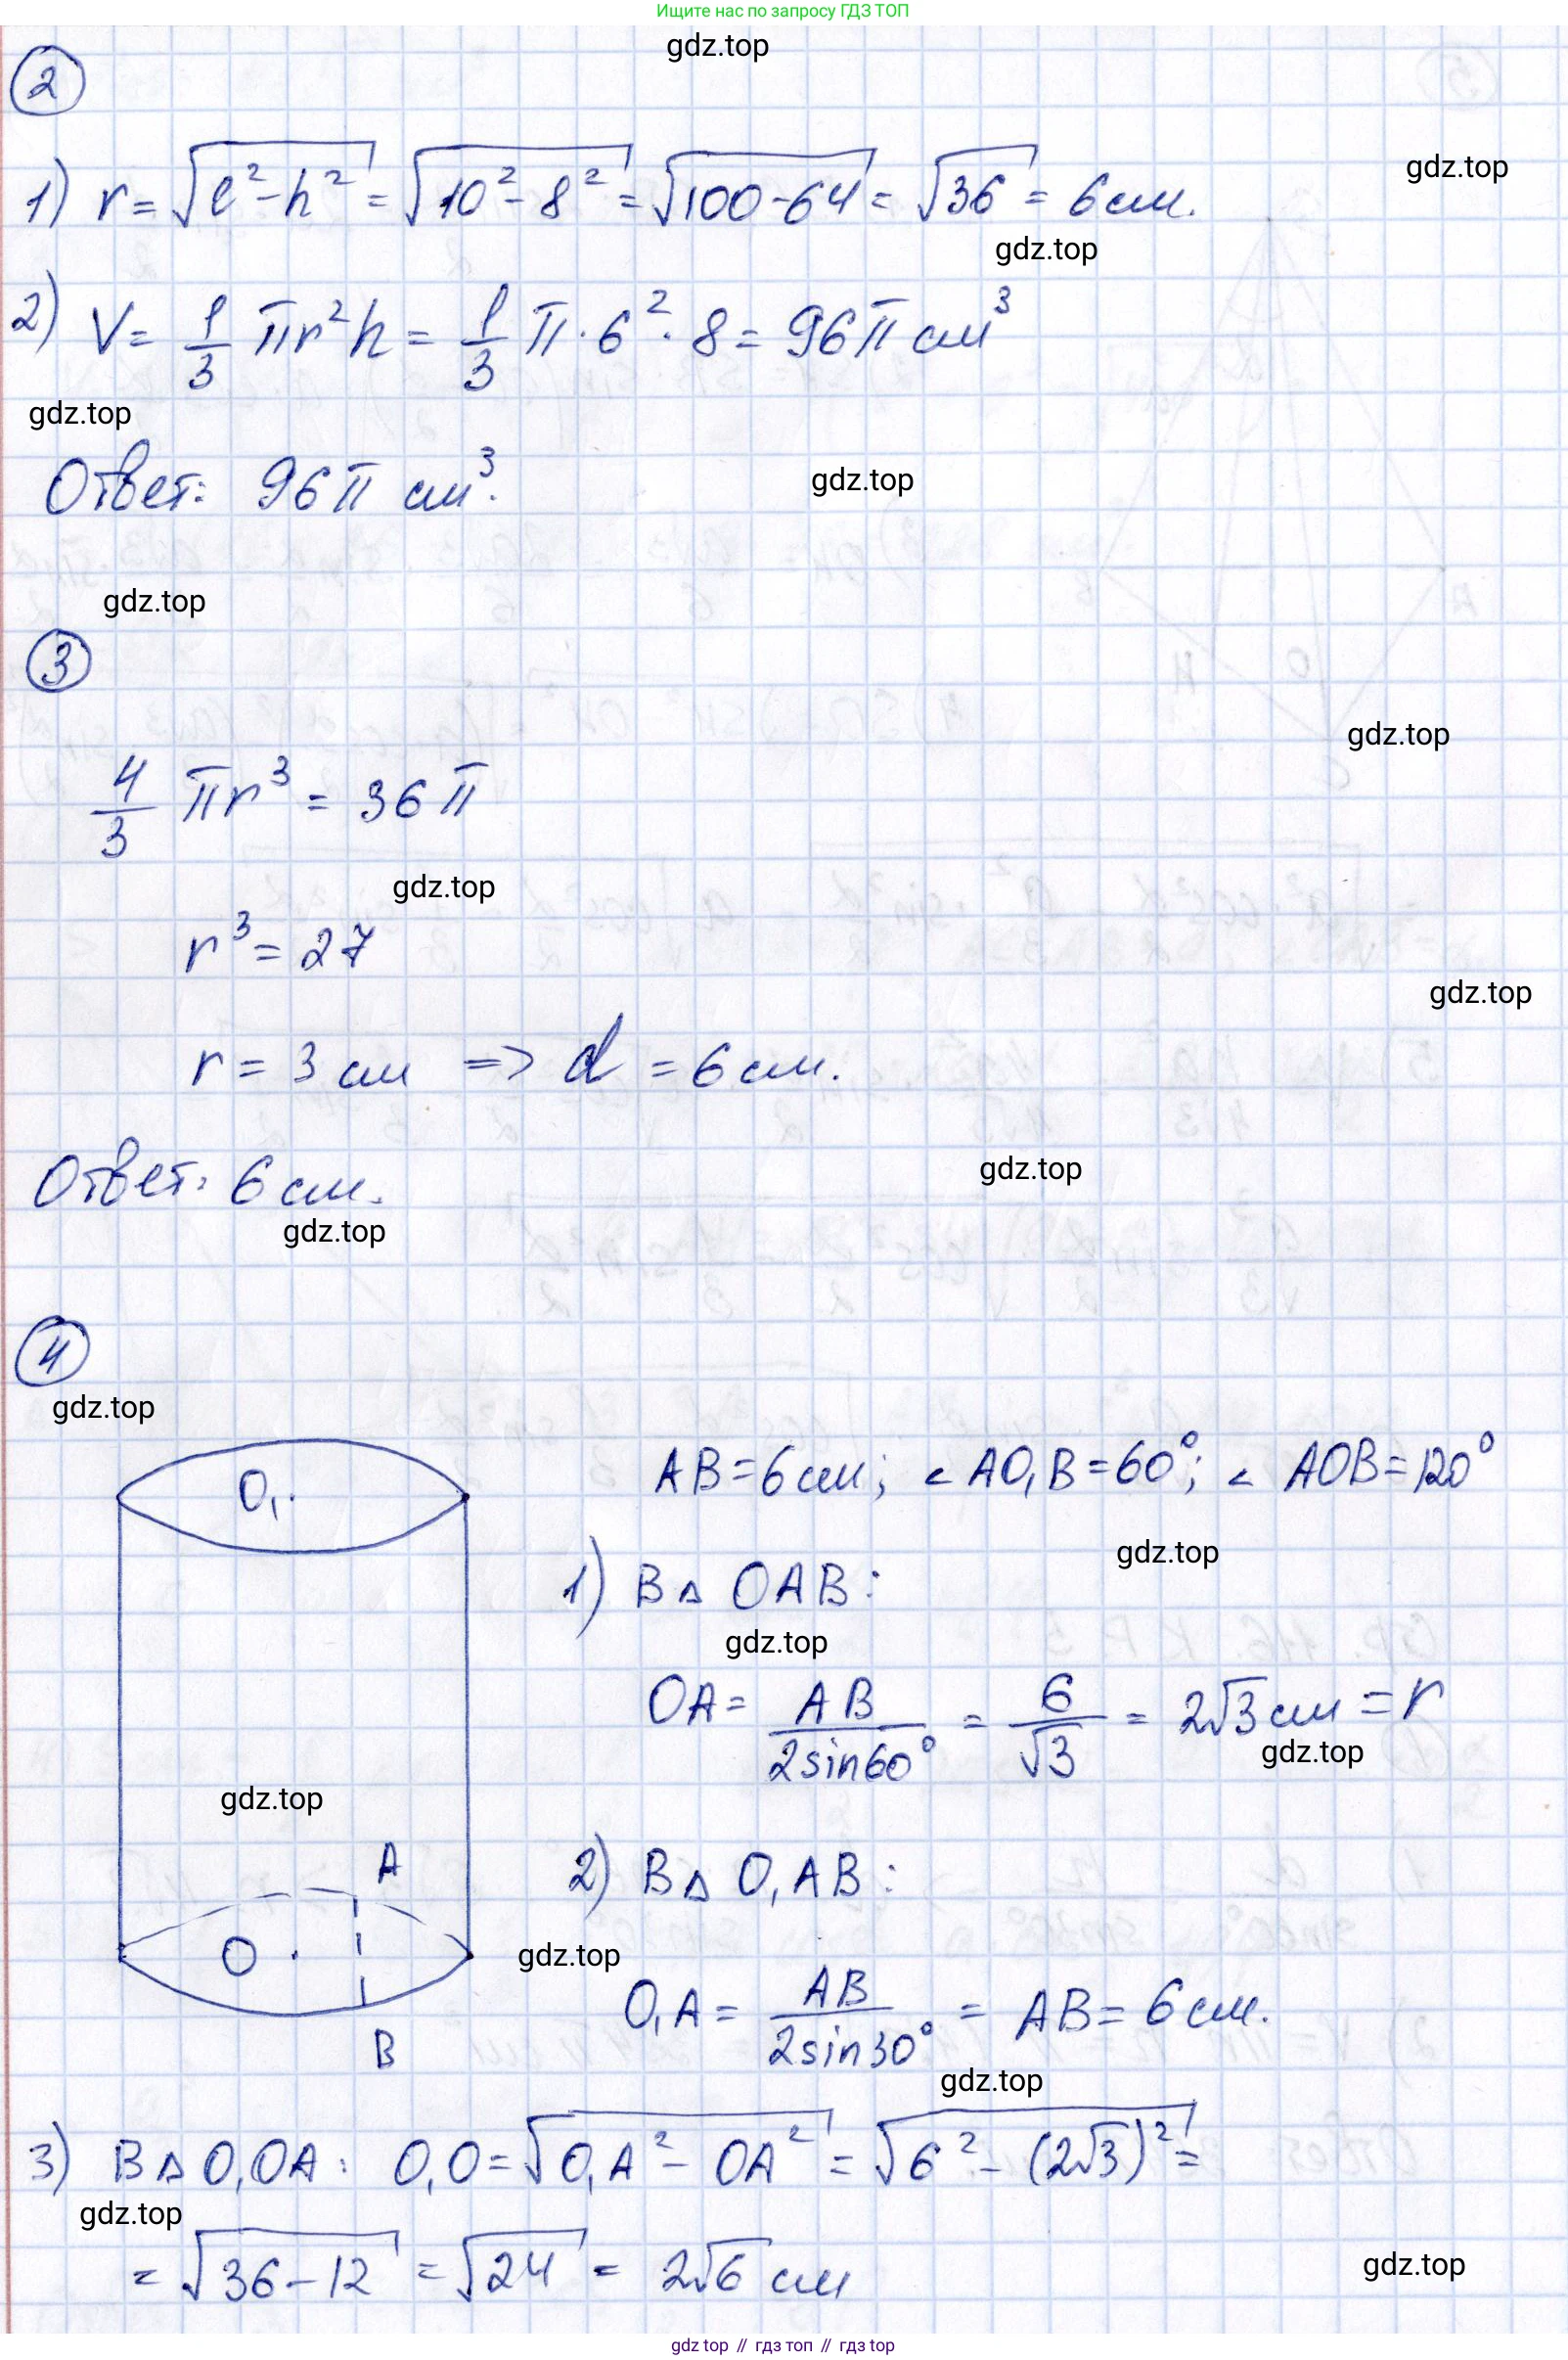 Ищите нас по запросу ГДЗ ТОП
gdz.top
2
1) r = √(l² - h²) = √(10² - 8²) = √(100 - 64) = √36 = 6 см.
gdz.top
gdz.top
2) V = 1/3 πr²h = 1/3 π · 6² · 8 = 96π см³
gdz.top
Ответ: 96π см³.
gdz.top
gdz.top
3
gdz.top
4/3 πr³ = 36π
gdz.top
r³ = 27
gdz.top
r = 3 см => d = 6 см.
gdz.top
Ответ: 6 см.
gdz.top
4
gdz.top
O₁
AB = 6 см; ∠ AO₁B = 60°; ∠ AOB = 120°
gdz.top
1) В △ OAB:
gdz.top
OA = AB / 2sin60° = 6 / √3 = 2√3 см = r
gdz.top
gdz.top
A
2) В △ O₁AB:
O
gdz.top
O₁A = AB / 2sin30° = AB = 6 см.
B
gdz.top
3) В △ O₁OA: O₁O = √(O₁A² - OA²) = √(6² - (2√3)²) =
gdz.top
= √(36 - 12) = √24 = 2√6 см
gdz.top
gdz top // гдз топ // гдз top